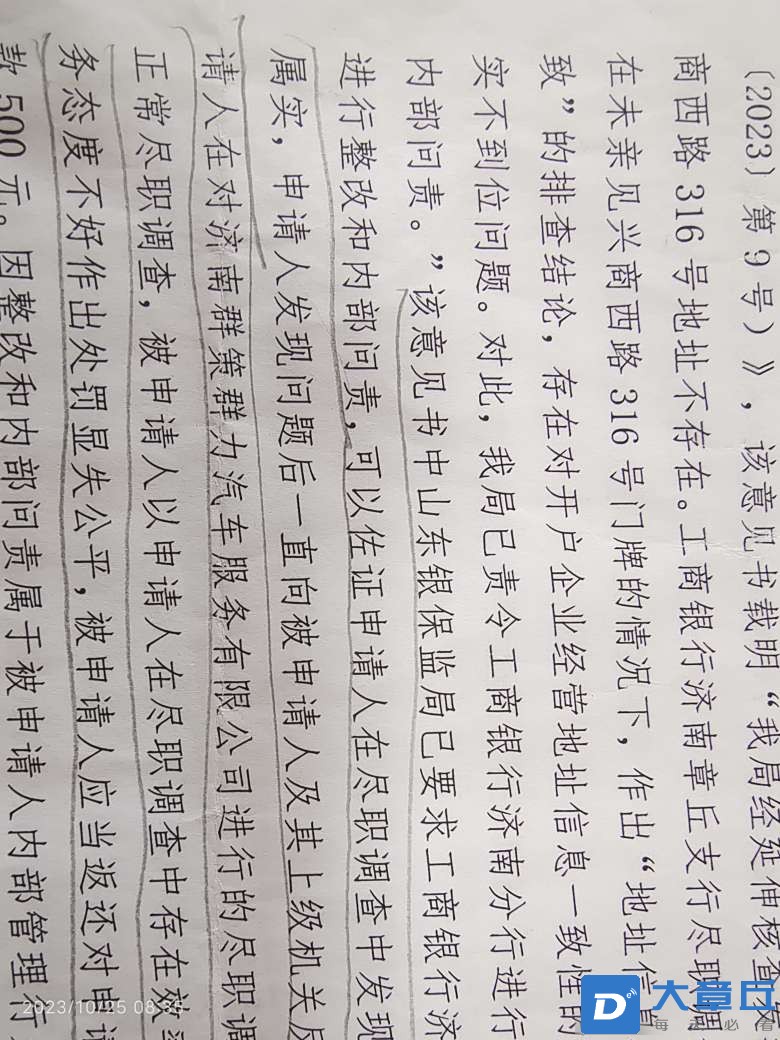 〔2023〕第 9 号）》，该意见书载明“我局经延伸核查
商西路 316 号地址不存在。工商银行济南章丘支行尽职调
在未亲见兴商西路 316 号门牌的情况下，作出“地址信
致”的排查结论，存在对开户企业经营地址信息一致性的
实不到位问题。对此，我局已责令工商银行济南分行进行
内部问责。”该意见书中山东银保监局已要求工商银行济
进行整改和内部问责，可以佐证申请人在尽职调查中发现
属实，申请人发现问题后一直向被申请人及其上级机关反
请人在对济南群策群力汽车服务有限公司进行的尽职调
正常尽职调查，被申请人以申请人在尽职调查中存在效
务态度不好作出处罚显失公平，被申请人应当返还对申请
款 500 元。因整改和内部问责属于被申请人内部管理行
2023/10/25 08:35
D 大章丘
每天必看